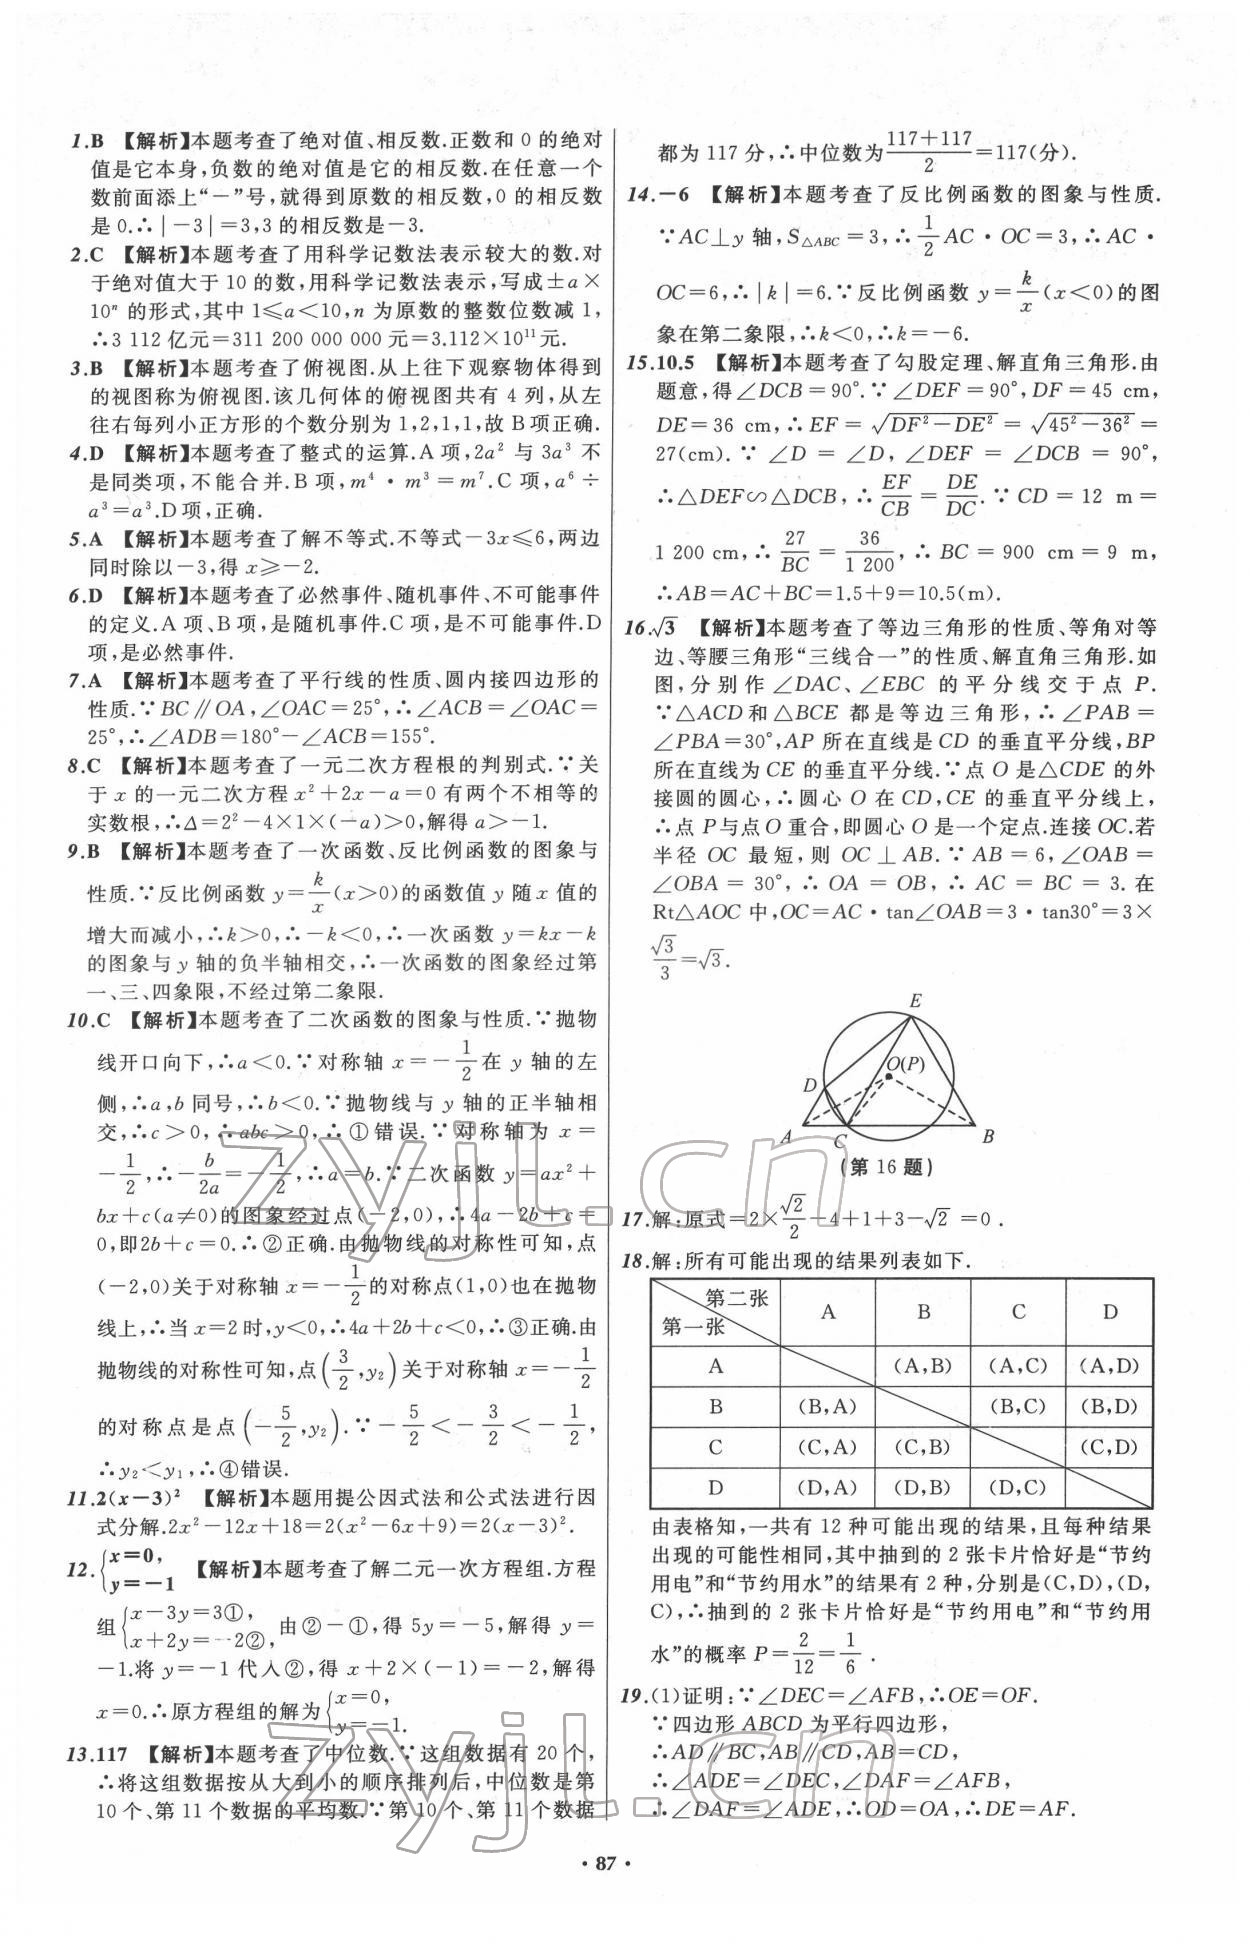 1.B 【解析】本题考查了绝对值、相反数.正数和 0 的绝对
值是它本身,负数的绝对值是它的相反数.在任意一个
数前面添上“－”号,就得到原数的相反数,0 的相反数
是 0.∴|－3|＝3,3的相反数是－3.
2.C 【解析】本题考查了用科学记数法表示较大的数.对
于绝对值大于 10 的数,用科学记数法表示,写成±a×
10ⁿ 的形式,其中 1≤a＜10,n 为原数的整数位数减 1,
∴3 112 亿元＝311 200 000 000 元＝3.112×10¹¹元.
3.B 【解析】本题考查了俯视图.从上往下观察物体得到
的视图称为俯视图.该几何体的俯视图共有 4 列,从左
往右每列小正方形的个数分别为 1,2,1,1,故 B项正确.
4.D 【解析】本题考查了整式的运算.A 项,2a² 与 3a³ 不
是同类项,不能合并.B 项,m⁴・m³＝m⁷.C 项,a⁶÷
a³＝a³.D 项,正确.
5.A 【解析】本题考查了解不等式.不等式－3x≤6,两边
同时除以－3,得 x≥－2.
6.D 【解析】本题考查了必然事件、随机事件、不可能事件
的定义.A 项、B 项,是随机事件.C 项,是不可能事件.D
项,是必然事件.
7.A 【解析】本题考查了平行线的性质、圆内接四边形的
性质.∵BC∥OA,∠OAC＝25°,∴∠ACB＝∠OAC＝
25°,∴∠ADB＝180°－∠ACB＝155°.
8.C 【解析】本题考查了一元二次方程根的判别式.∵关
于 x 的一元二次方程 x²＋2x－a＝0 有两个不相等的
实数根,∴Δ＝2²－4×1×(－a)＞0,解得 a＞－1.
9.B 【解析】本题考查了一次函数、反比例函数的图象与
性质.∵反比例函数 y＝k/x(x＞0)的函数值 y 随 x 值的
增大而减小,∴k＞0,∴－k＜0,∴一次函数 y＝kx－k
的图象与 y 轴的负半轴相交,∴一次函数的图象经过第
一、三、四象限,不经过第二象限.
10.C 【解析】本题考查了二次函数的图象与性质.∵抛物
线开口向下,∴a＜0.∵对称轴 x＝－1/2在 y 轴的左
侧,∴a,b 同号,∴b＜0.∵抛物线与 y 轴的正半轴相
交,∴c＞0,∴abc＞0,∴①错误.∵对称轴为 x＝
－1/2,∴－b/2a＝－1/2,∴a＝b.∵二次函数 y＝ax²＋
bx＋c(a≠0)的图象经过点(－2,0),∴4a－2b＋c＝
0,即2b＋c＝0.∴②正确.由抛物线的对称性可知,点
(－2,0)关于对称轴 x＝－1/2的对称点(1,0)也在抛物
线上,∴当 x＝2 时,y＜0,∴4a＋2b＋c＜0,∴③正确.由
抛物线的对称性可知,点(3/2,y₂)关于对称轴 x＝－1/2
的对称点是点(－5/2,y₂).∵－5/2＜－3/2＜－1/2,
∴y₂＜y₁,∴④错误.
11.2(x－3)² 【解析】本题用提公因式法和公式法进行因
式分解.2x²－12x＋18＝2(x²－6x＋9)＝2(x－3)².
12.{x＝0, y＝－1 【解析】本题考查了解二元一次方程组.方程
组{x－3y＝3①, x＋2y＝－2②, 由②－①,得 5y＝－5,解得 y＝
－1.将 y＝－1 代入②,得 x＋2×(－1)＝－2,解得
x＝0.∴原方程组的解为{x＝0, y＝－1.
13.117 【解析】本题考查了中位数.∵这组数据有 20 个,
∴将这组数据按从大到小的顺序排列后,中位数是第
10 个、第 11 个数据的平均数.∵第 10 个、第 11 个数据
都为 117 分,∴中位数为(117＋117)/2＝117(分).
14.－6 【解析】本题考查了反比例函数的图象与性质.
∵AC⊥y 轴,S△ABC＝3,∴1/2AC・OC＝3,∴AC・
OC＝6,∴|k|＝6.∵反比例函数 y＝k/x(x＜0)的图
象在第二象限,∴k＜0,∴k＝－6.
15.10.5 【解析】本题考查了勾股定理、解直角三角形.由
题意,得∠DCB＝90°.∵∠DEF＝90°,DF＝45 cm,
DE＝36 cm,∴EF＝√(DF²－DE²)＝√(45²－36²)＝
27(cm).∵∠D＝∠D,∠DEF＝∠DCB＝90°,
∴△DEF∽△DCB,∴EF/CB＝DE/DC.∵CD＝12 m＝
1 200 cm,∴27/BC＝36/1 200,∴BC＝900 cm＝9 m,
∴AB＝AC＋BC＝1.5＋9＝10.5(m).
16.√3 【解析】本题考查了等边三角形的性质、等角对等
边、等腰三角形“三线合一”的性质、解直角三角形.如
图,分别作∠DAC、∠EBC 的平分线交于点 P.
∵△ACD和△BCE 都是等边三角形,∴∠PAB＝
∠PBA＝30°,AP 所在直线是 CD 的垂直平分线,BP
所在直线为 CE 的垂直平分线.∵点 O 是△CDE 的外
接圆的圆心,∴圆心 O 在 CD,CE 的垂直平分线上,
∴点 P与点 O 重合,即圆心 O 是一个定点.连接 OC.若
半径 OC 最短,则 OC⊥AB.∵AB＝6,∠OAB＝
∠OBA＝30°,∴OA＝OB,∴AC＝BC＝3.在
Rt△AOC 中,OC＝AC・tan∠OAB＝3・tan30°＝3×
√3/3＝√3.
E
O(P)
D
A C B
(第 16 题)
17.解:原式＝2×√2/2－4＋1＋3－√2＝0.
18.解:所有可能出现的结果列表如下.
第二张 第一张 A B C D
A (A,B) (A,C) (A,D)
B (B,A) (B,C) (B,D)
C (C,A) (C,B) (C,D)
D (D,A) (D,B) (D,C)
由表格知,一共有 12 种可能出现的结果,且每种结果
出现的可能性相同,其中抽到的 2 张卡片恰好是“节约
用电”和“节约用水”的结果有 2 种,分别是(C,D),(D,
C),∴抽到的 2 张卡片恰好是“节约用电”和“节约用
水”的概率 P＝2/12＝1/6.
19.(1)证明:∵∠DEC＝∠AFB,∴OE＝OF.
∵四边形 ABCD 为平行四边形,
∴AD∥BC,AB∥CD,AB＝CD,
∴∠ADE＝∠DEC,∠DAF＝∠AFB,
∴∠DAF＝∠ADE,∴OD＝OA,∴DE＝AF.
・87・
zyjl.cn
zyjl.cn